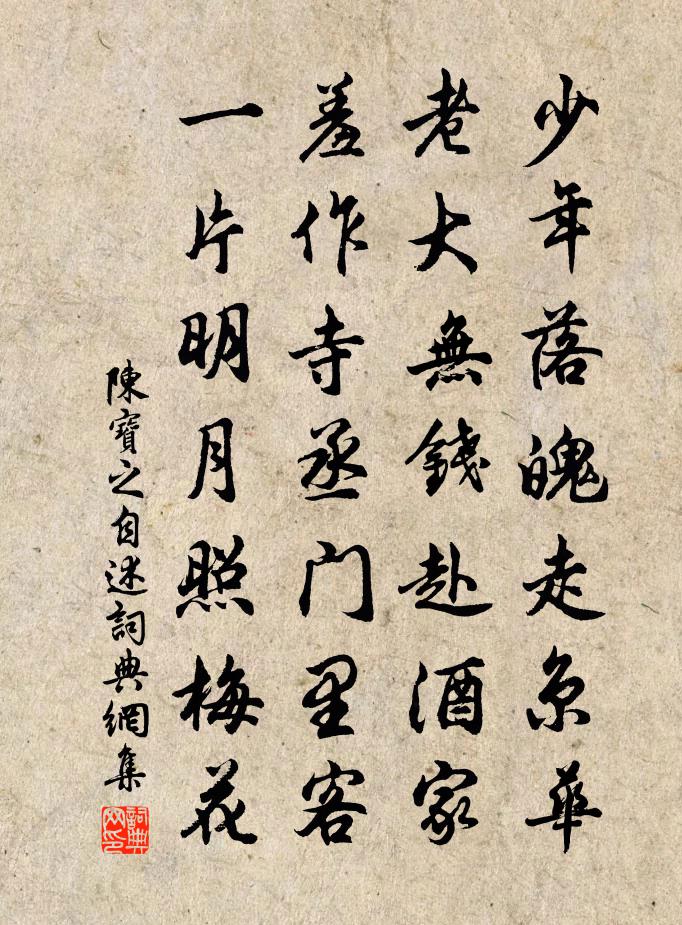 少年落魄走京華
老大無錢赴酒家
羞作寺丞門里客
一片明月照梅花
陳寶之自述詞典網集
詞典网印